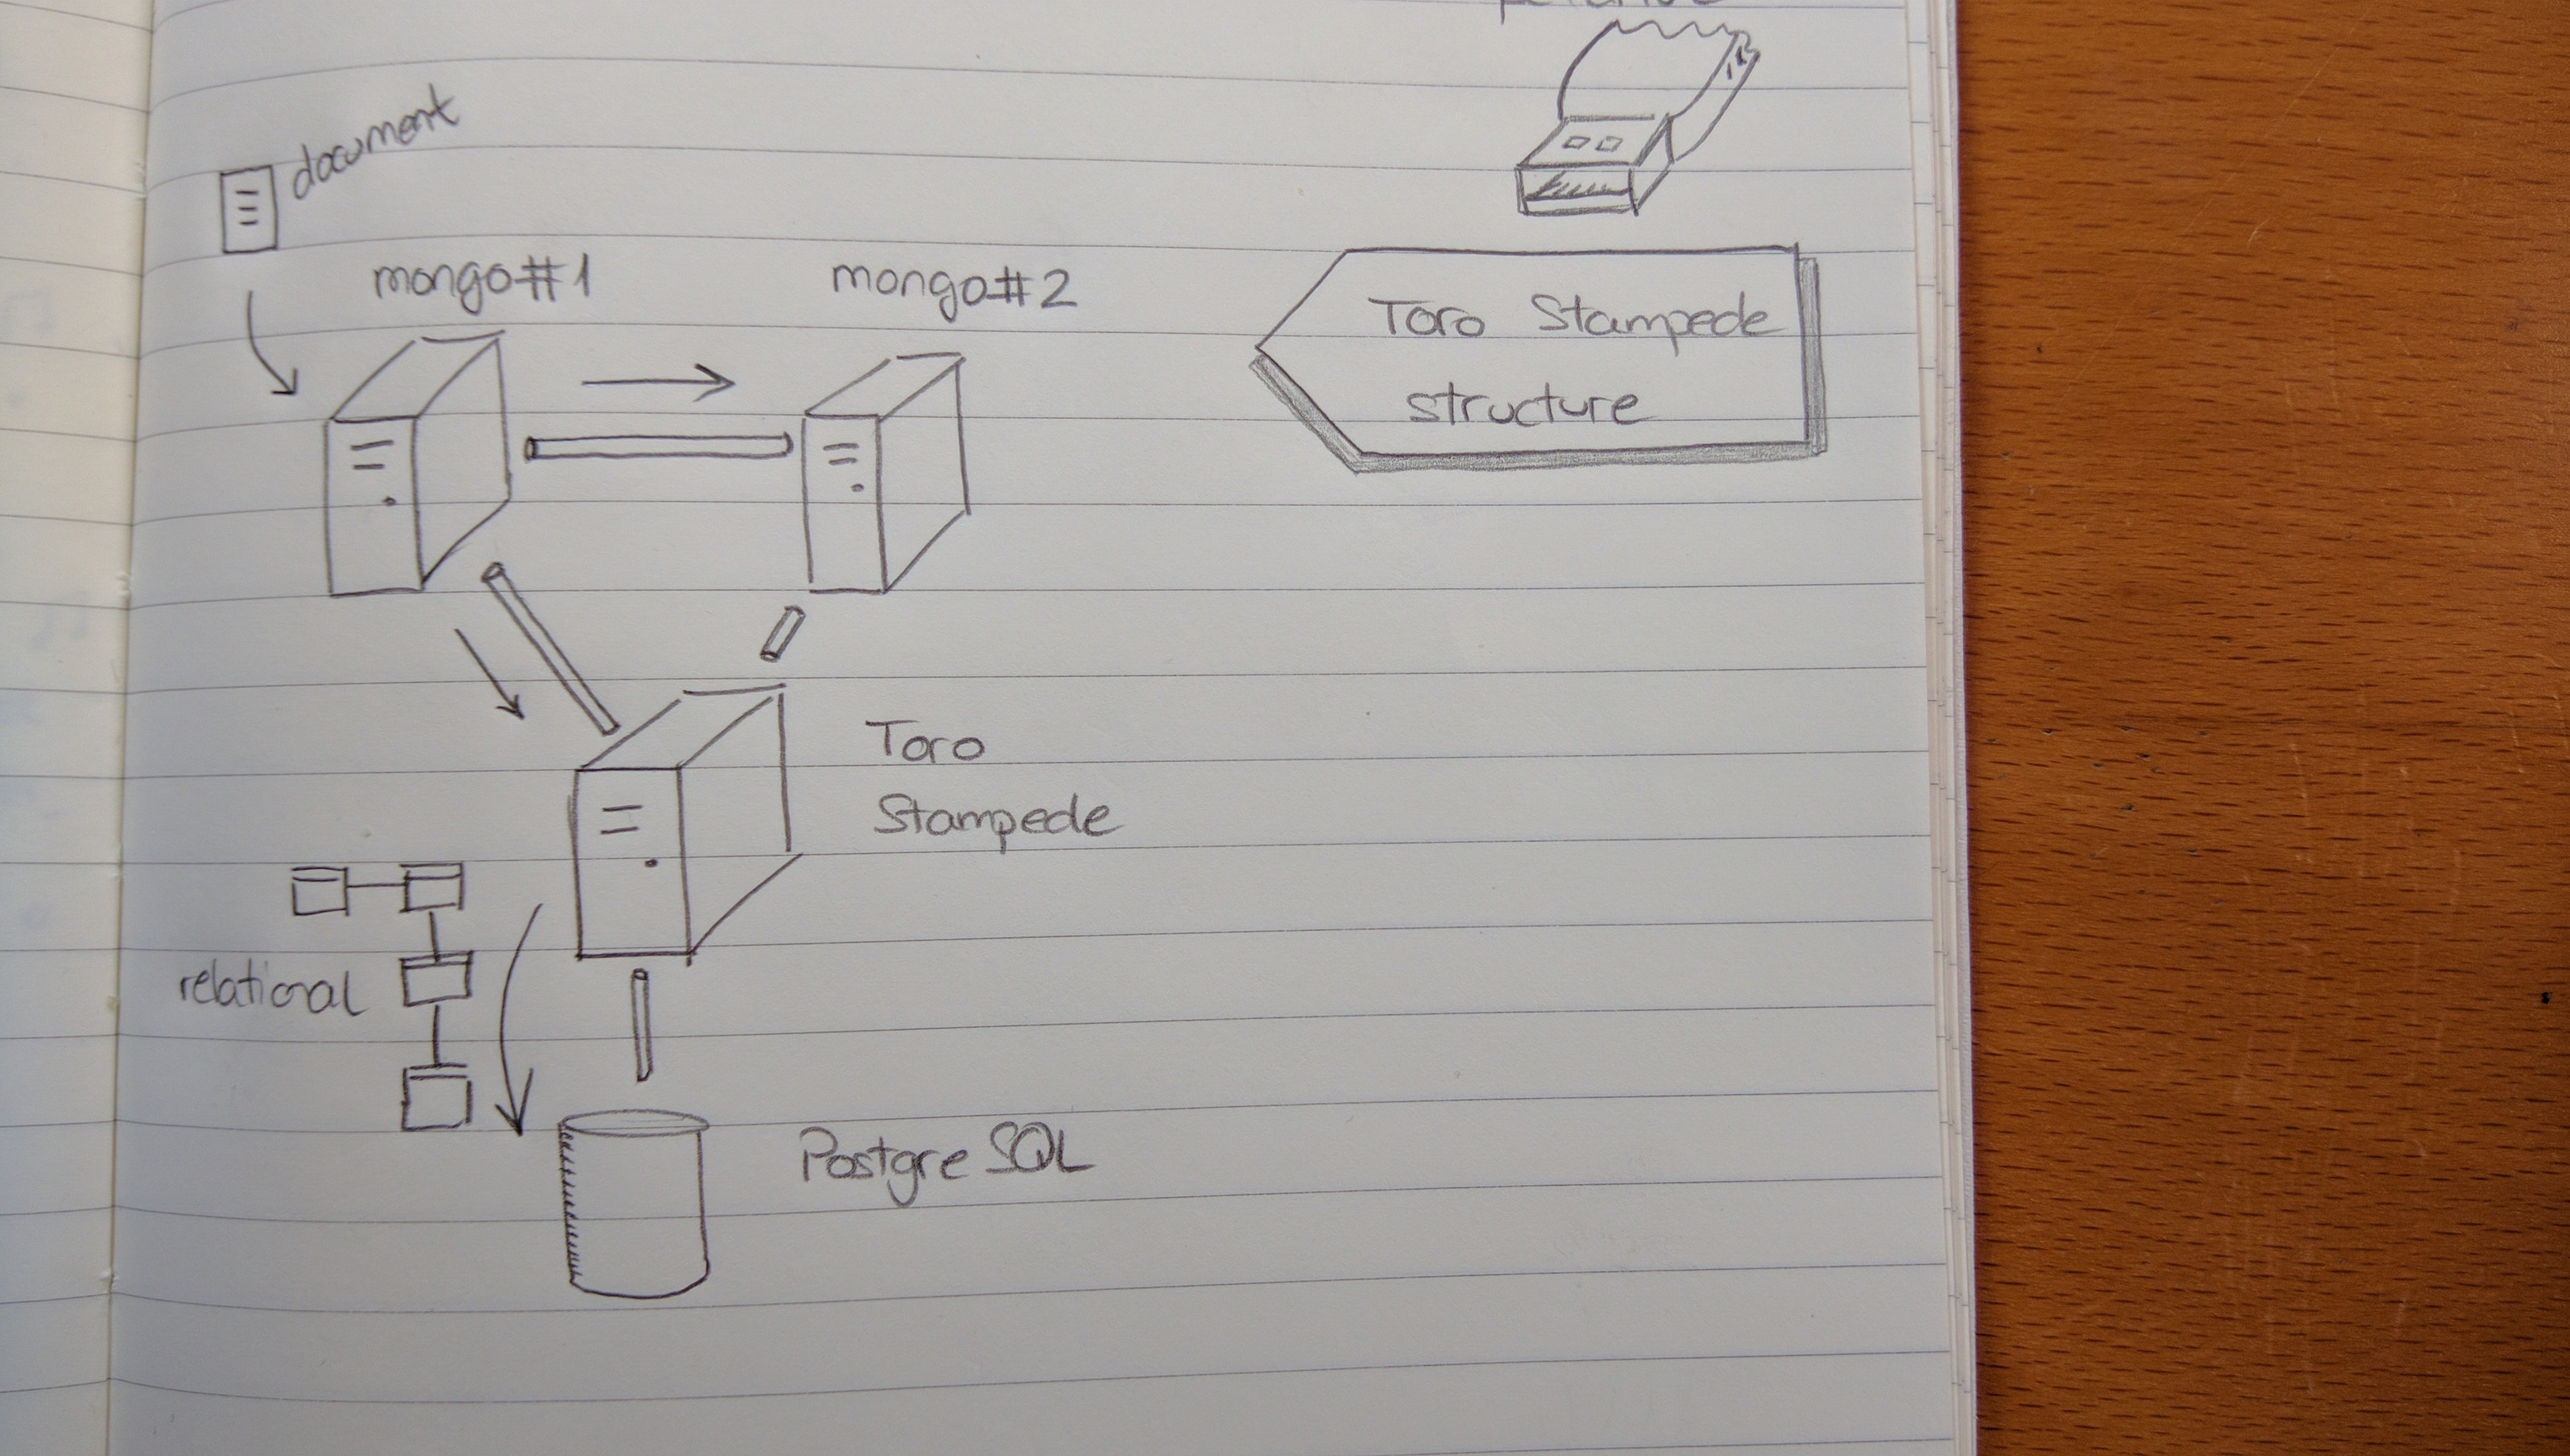 document
mongo#1
mongo#2
Toro Stampede
structure
Toro
Stampede
relational
PostgreSQL